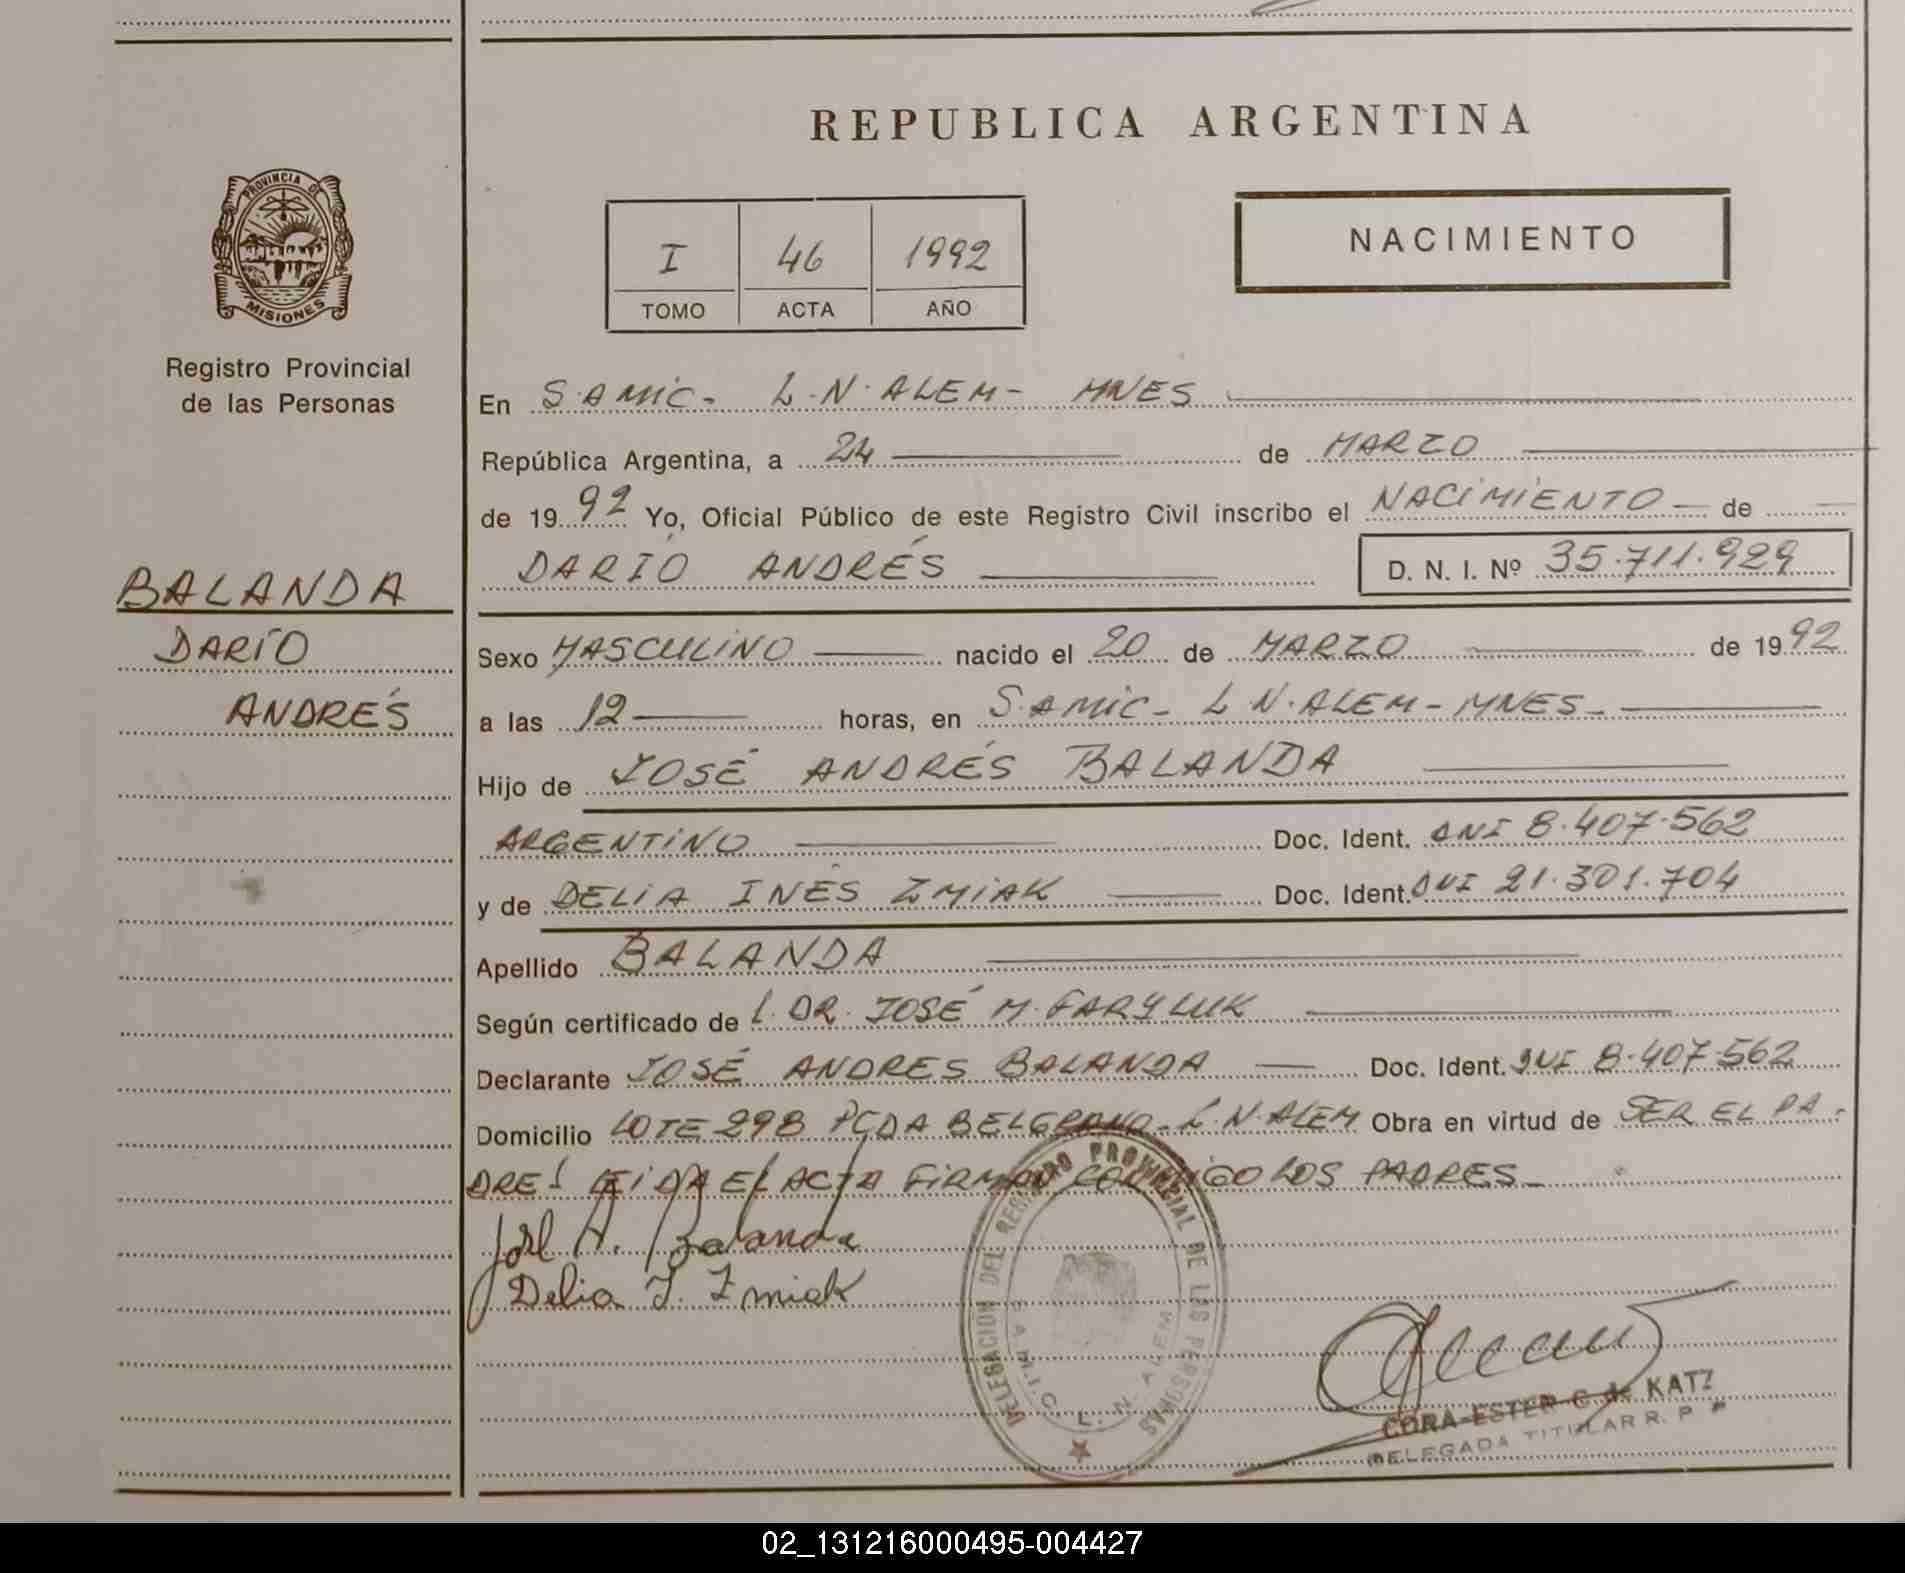 REPUBLICA ARGENTINA
PROVINCIA DE
MISIONES
Registro Provincial
de las Personas
I 46 1992
TOMO ACTA AÑO
NACIMIENTO
En S.AMIC- L.N.ALEM- MNES
República Argentina, a 24 de MARZO
de 1992 Yo, Oficial Público de este Registro Civil inscribo el NACIMIENTO de
DARIO ANDRÉS D. N. I. Nº 35.711.929
BALANDA
DARÍO
ANDRÉS
Sexo MASCULINO nacido el 20 de MARZO de 1992
a las 12 horas, en S.AMIC- L N.ALEM-MNES-
Hijo de JOSÉ ANDRÉS BALANDA
ARGENTINO Doc. Ident. DNI 8.407.562
y de DELIA INÉS ZMIAK Doc. Ident. DNI 21.301.704
Apellido BALANDA
Según certificado de L. DR. JOSÉ M. FARYLUK
Declarante JOSÉ ANDRES BALANDA Doc. Ident. DNI 8.407.562
Domicilio LOTE 298 PCDA BELGRANO-L.N.ALEM Obra en virtud de SER EL PA-
DRE! LEIDA EL ACTA FIRMAN CONMIGO LOS PADRES-
José A. Balanda
Delia I. Zmiak
DELEGACION DEL REGISTRO PROVINCIAL DE LAS PERSONAS
S.A.M.I.C. L. N. ALEM
CORA ESTER C de KATZ
DELEGADA TITULAR R. P P
02_131216000495-004427